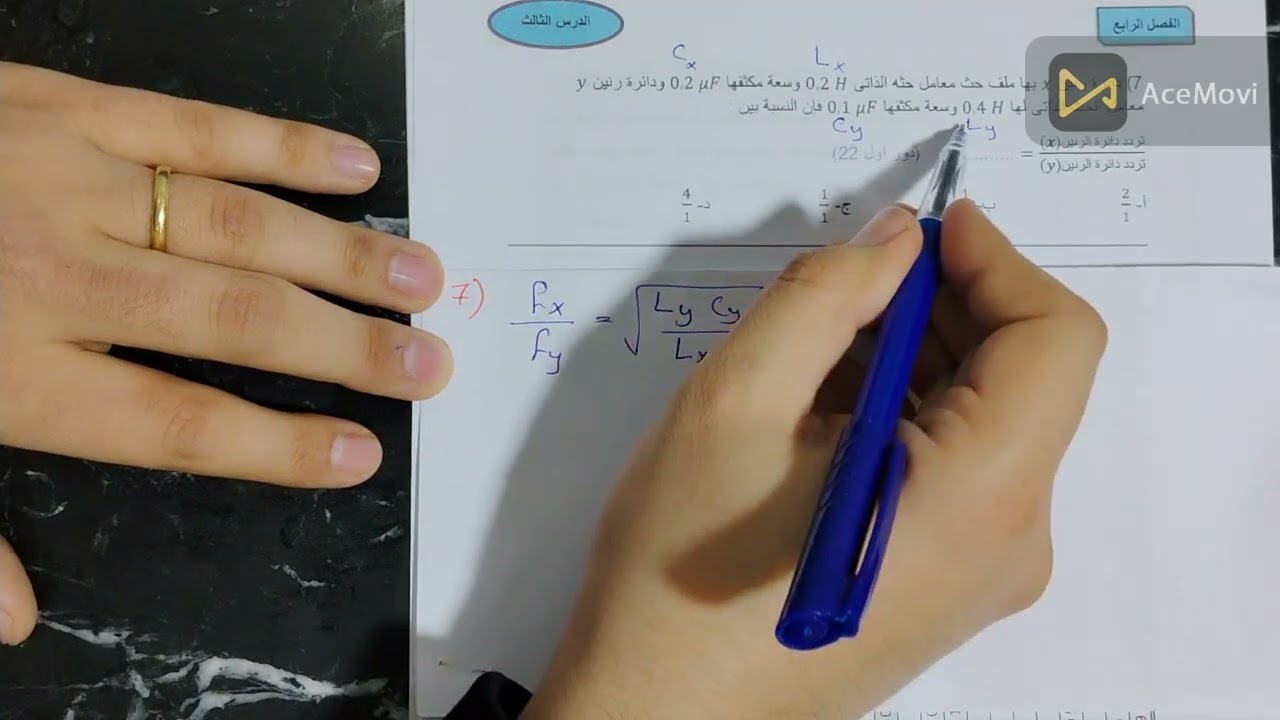 الفصل الرابع
الدرس الثالث
AceMovi
Cx Lx
7) x بها ملف حث معامل حثه الذاتى 0.2 H وسعة مكثفها 0.2 μF ودائرة رنين y
لها 0.4 H وسعة مكثفها 0.1 μF فإن النسبة بين :
Cy Ly
تردد دائرة الرنين(x)
تردد دائرة الرنين(y)
= .......... (دور اول 22)
أ- 2/1 ب- ج- 1/1 د- 4/1
7) fx/fy = √ Ly Cy / Lx